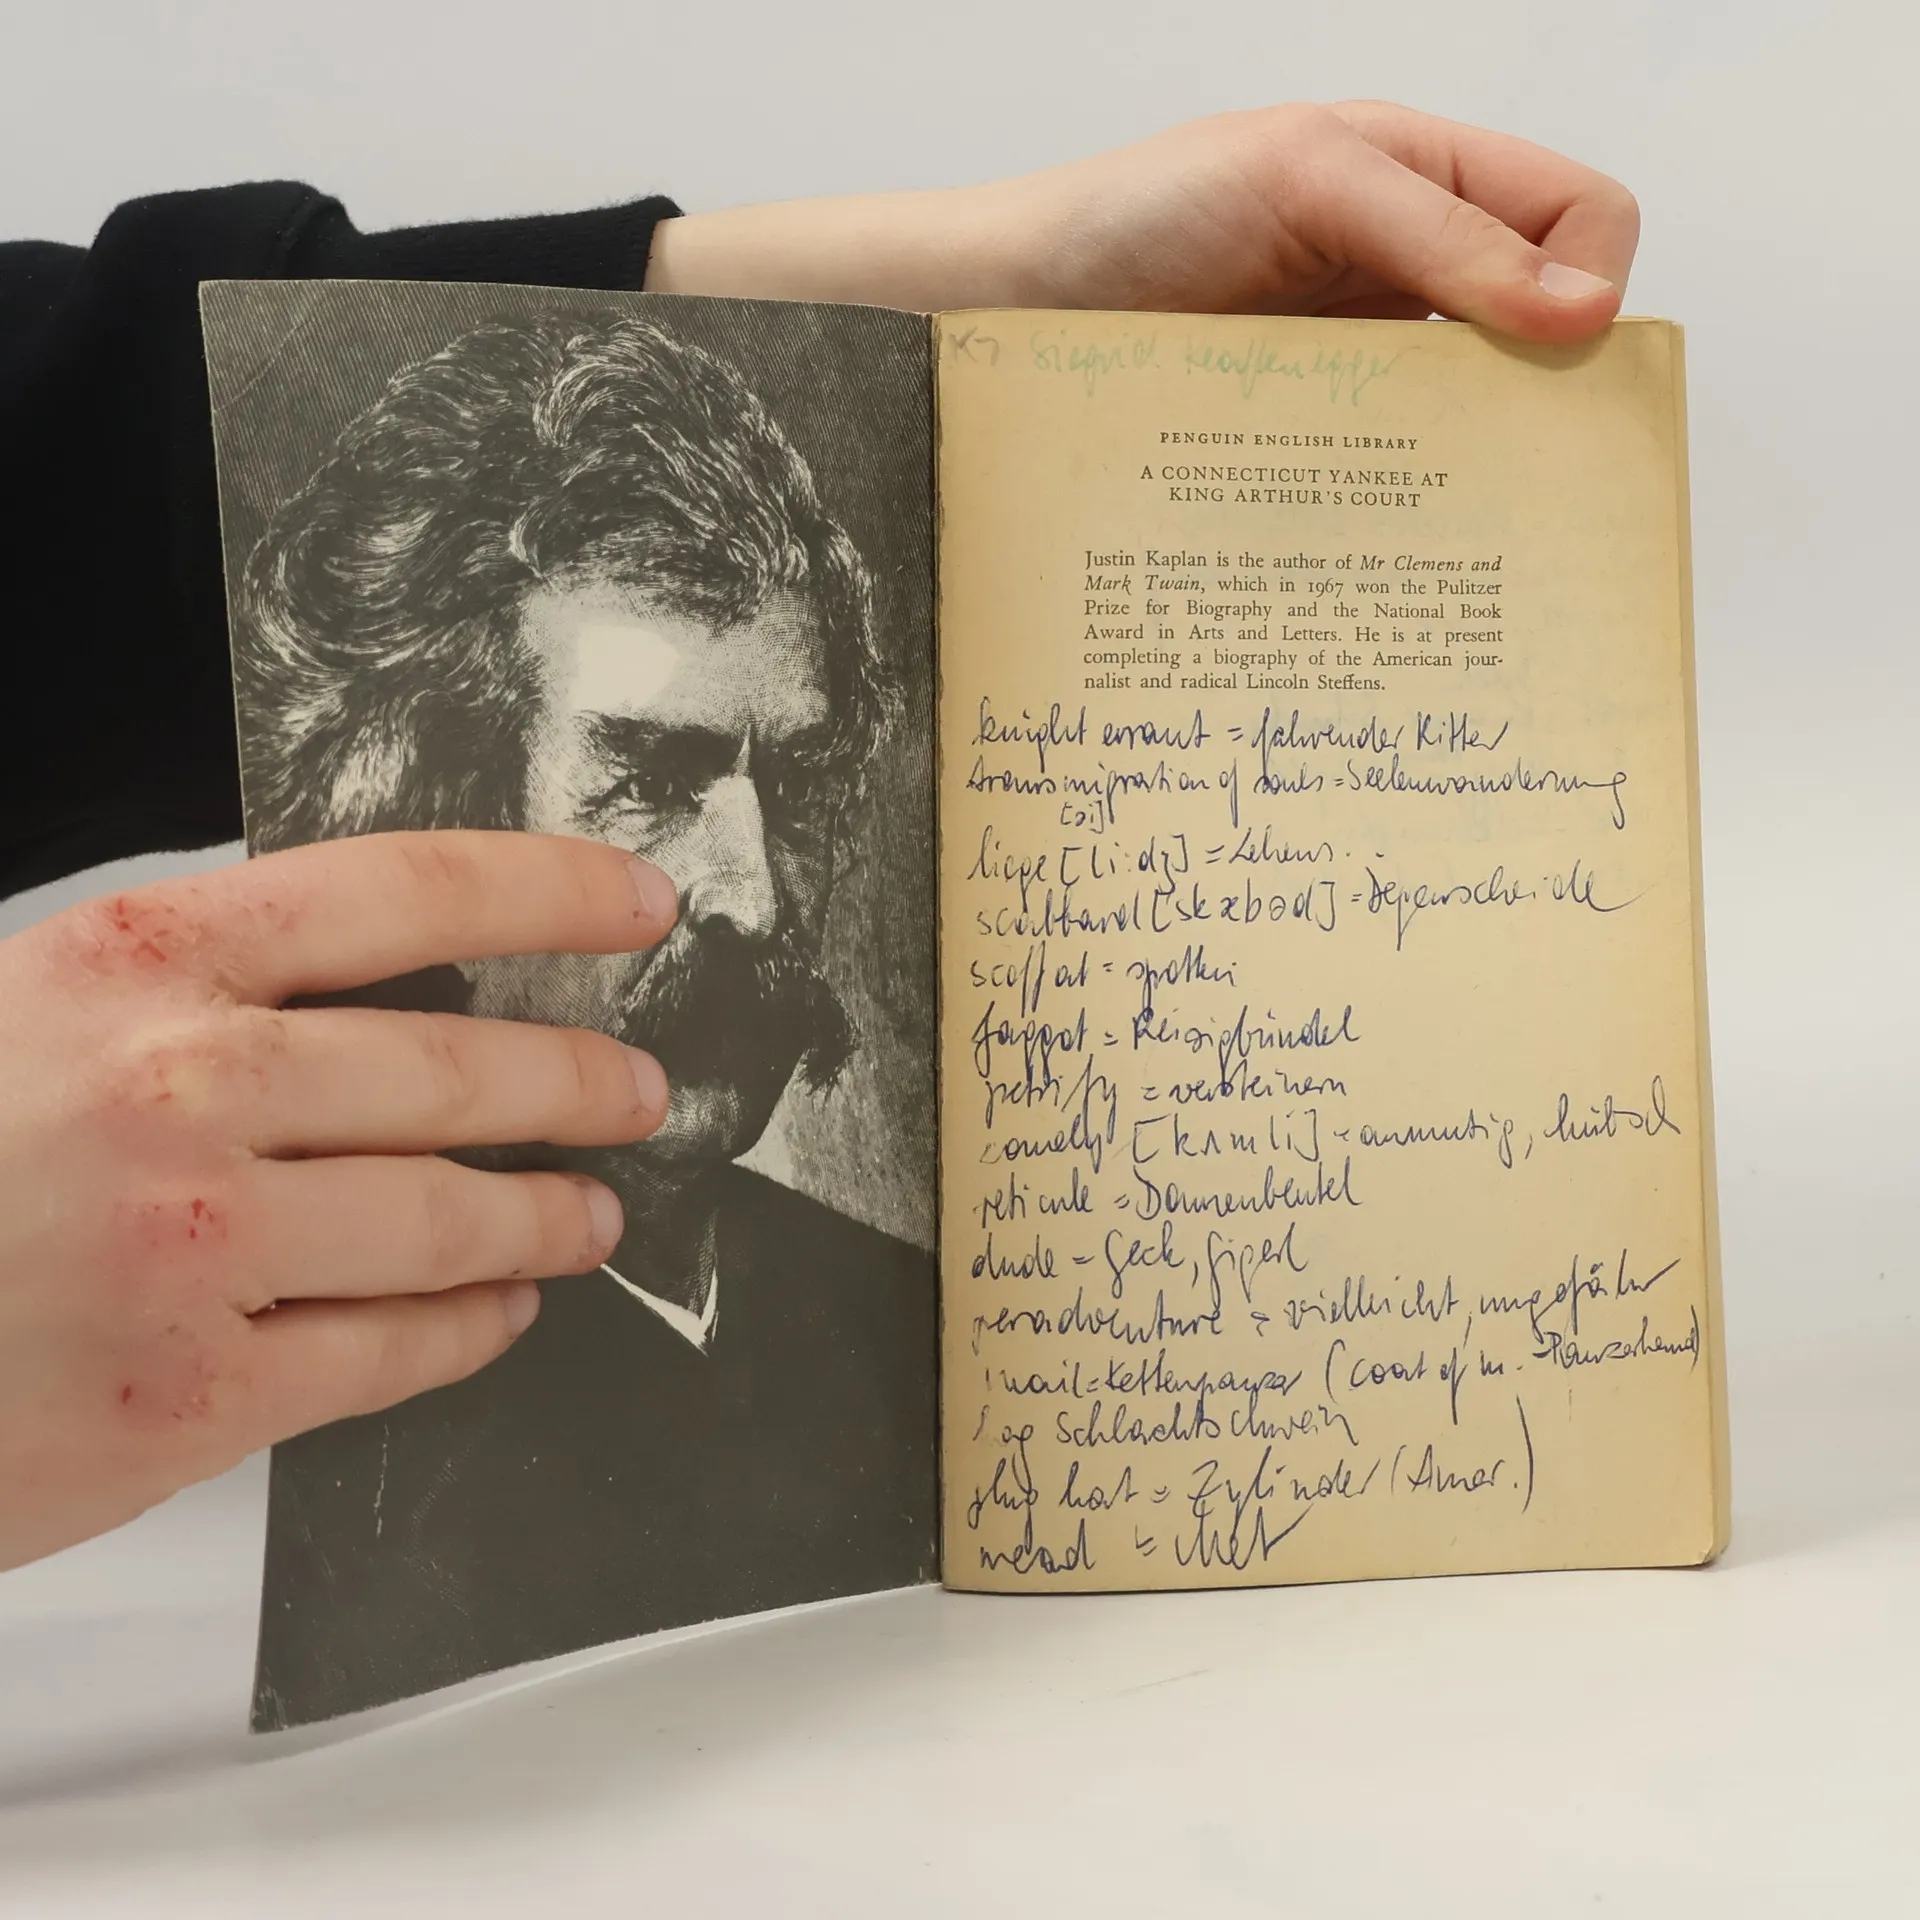 K7 Siegrid
PENGUIN ENGLISH LIBRARY
A CONNECTICUT YANKEE AT
KING ARTHUR'S COURT
Justin Kaplan is the author of Mr Clemens and
Mark Twain, which in 1967 won the Pulitzer
Prize for Biography and the National Book
Award in Arts and Letters. He is at present
completing a biography of the American jour-
nalist and radical Lincoln Steffens.
knight errant = fahrender Ritter
transmigration of souls = Seelenwanderung
[ai]
liege [li:dʒ] = Lehens..
scabbard [skæbəd] = Degenscheide
scoff at = spotten
faggot = Reisigbündel
petrify = versteinern
comely [kʌmli] = anmutig, hübsch
reticule = Damenbeutel
dude = Geck, Gigerl
peradventure = vielleicht, ungefähr
mail = Kettenpanzer (coat of m. - Panzerhemd)
hog Schlachtschwein
plug hat = Zylinder (Amer.)
mead = Met